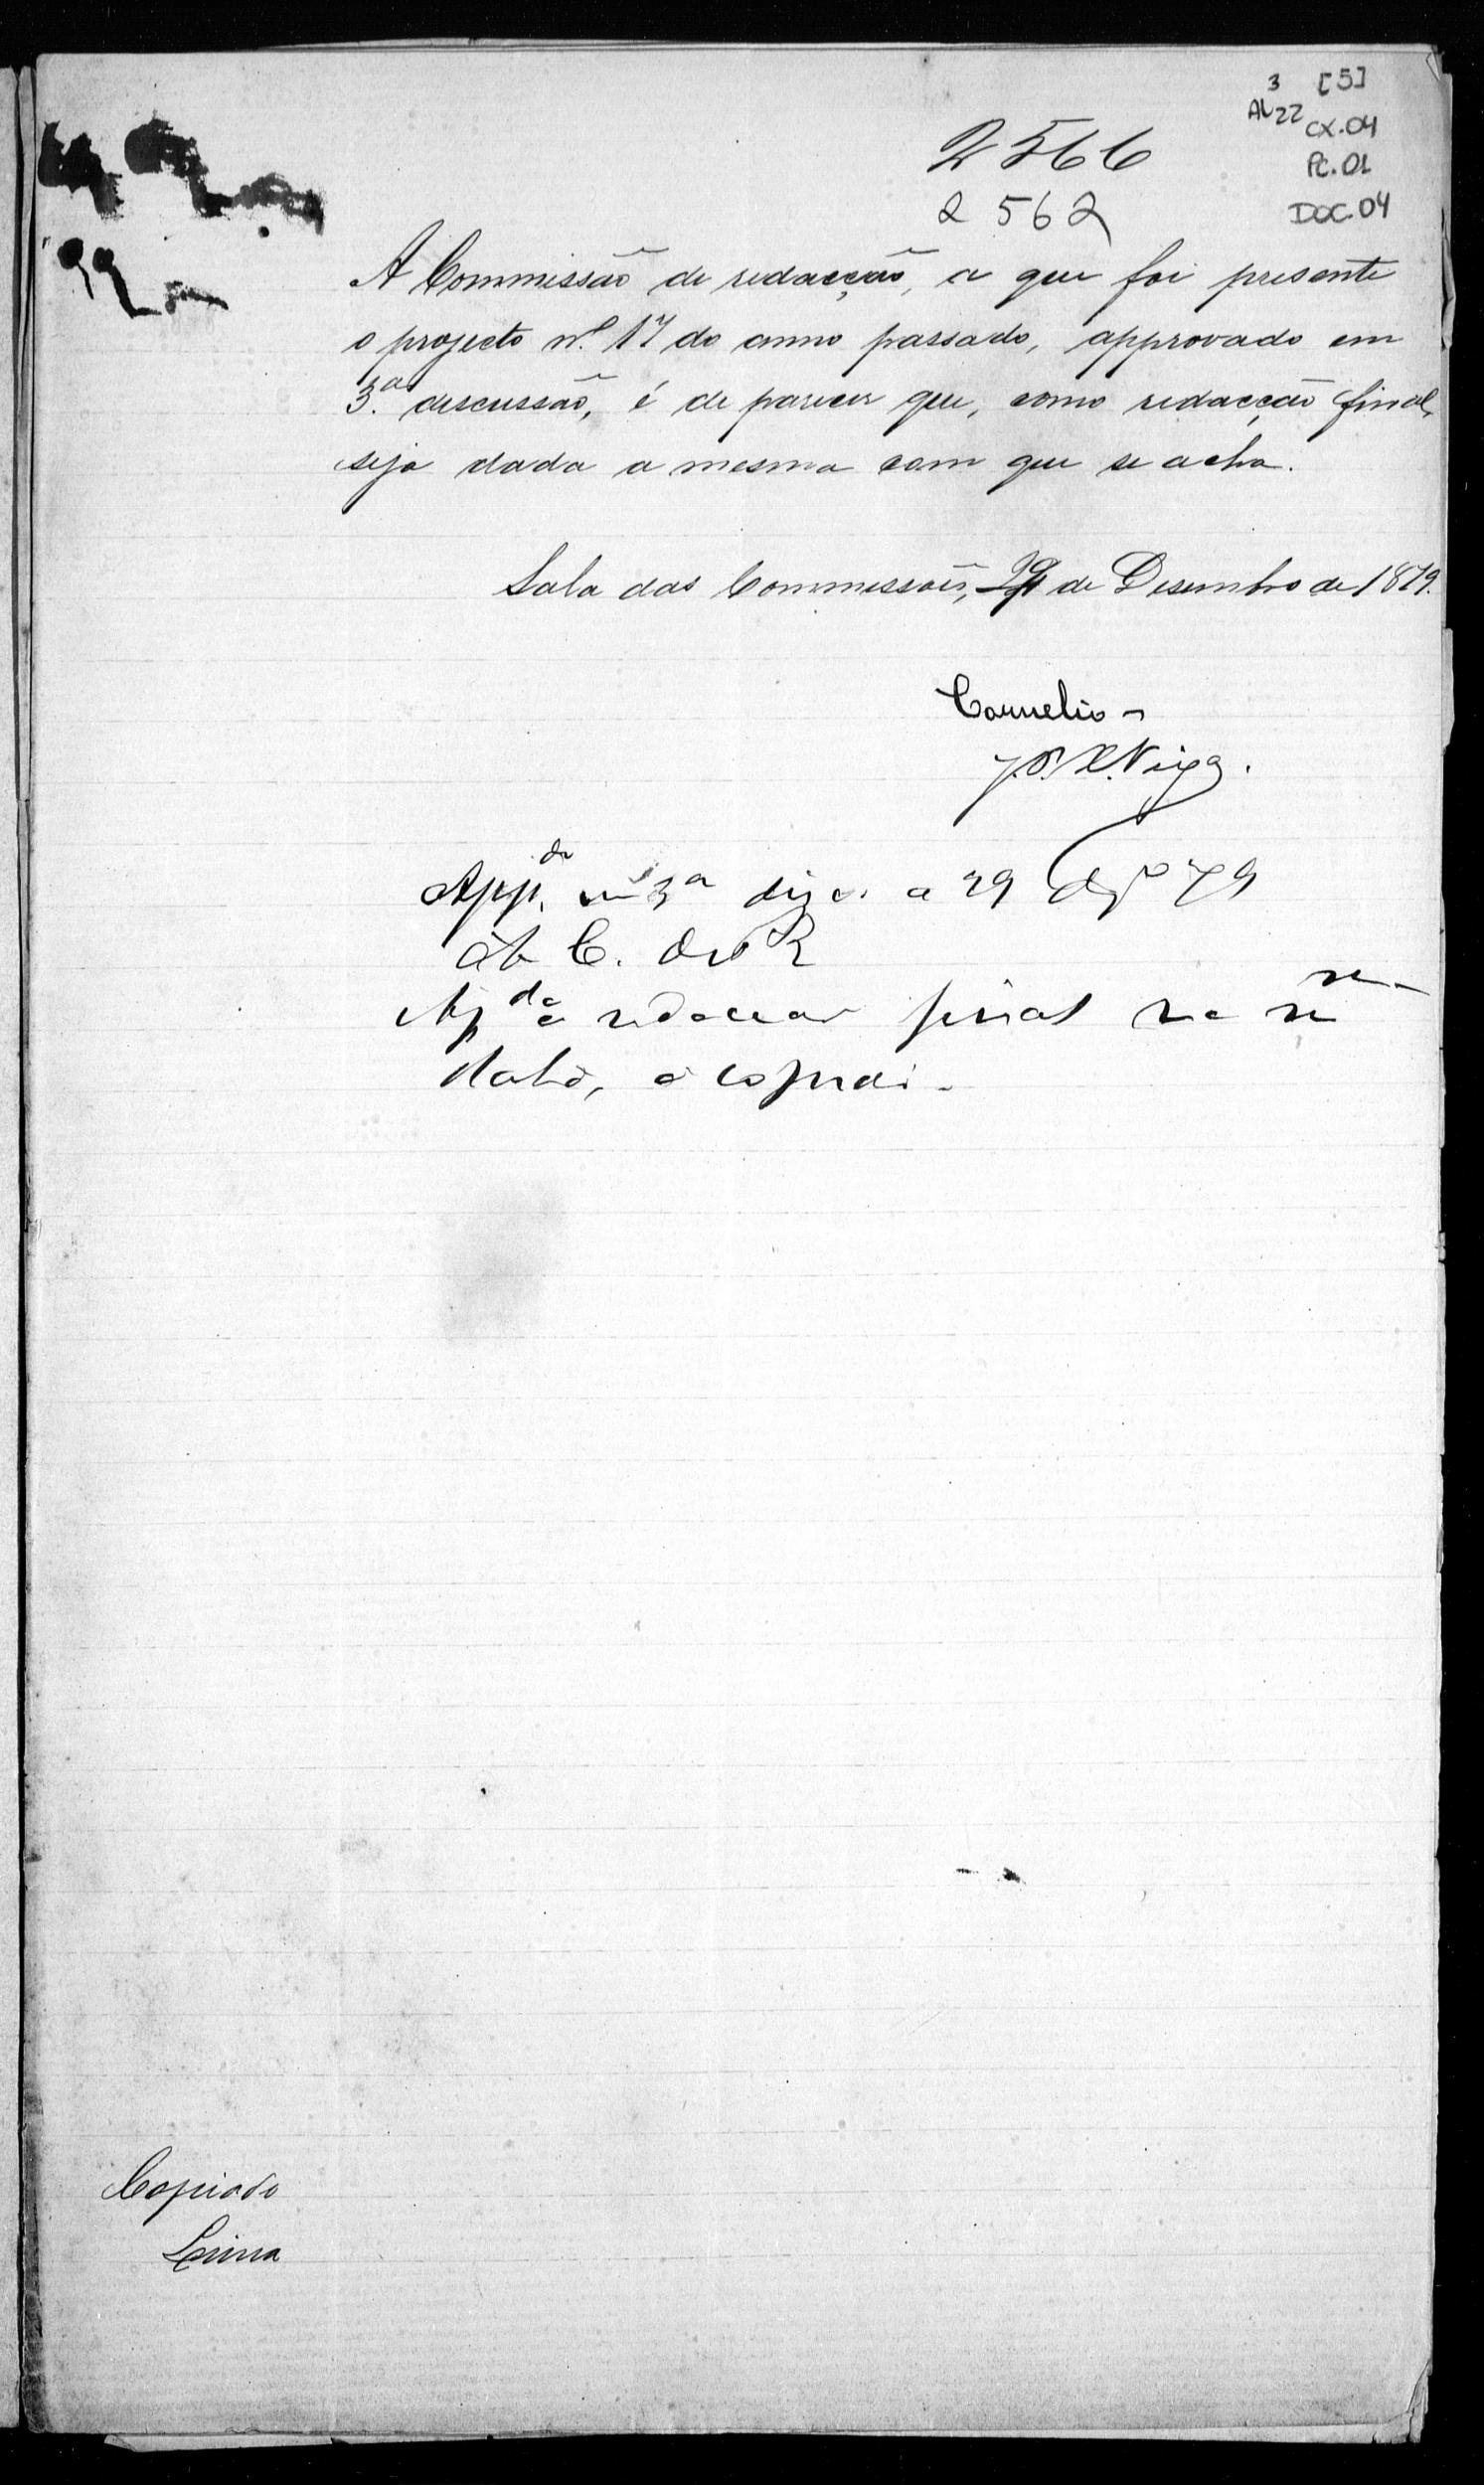 3 [5]
AL22 CX.04
PC.01
DOC.04
2566
2562
A Commissão de redacção, a que foi presente
o projecto nº. 17 do anno passado, approvado em
3.ª discussão, é de parecer que, como redacção final,
seja dada a mesma com que se acha.
Sala das Commissões, 29 de Desembro de 1879.
Cornelio
J.
App.do em 3ª a 29 79
C. de R
Ap.da a redaccao final na
data,
Copiado
Lima